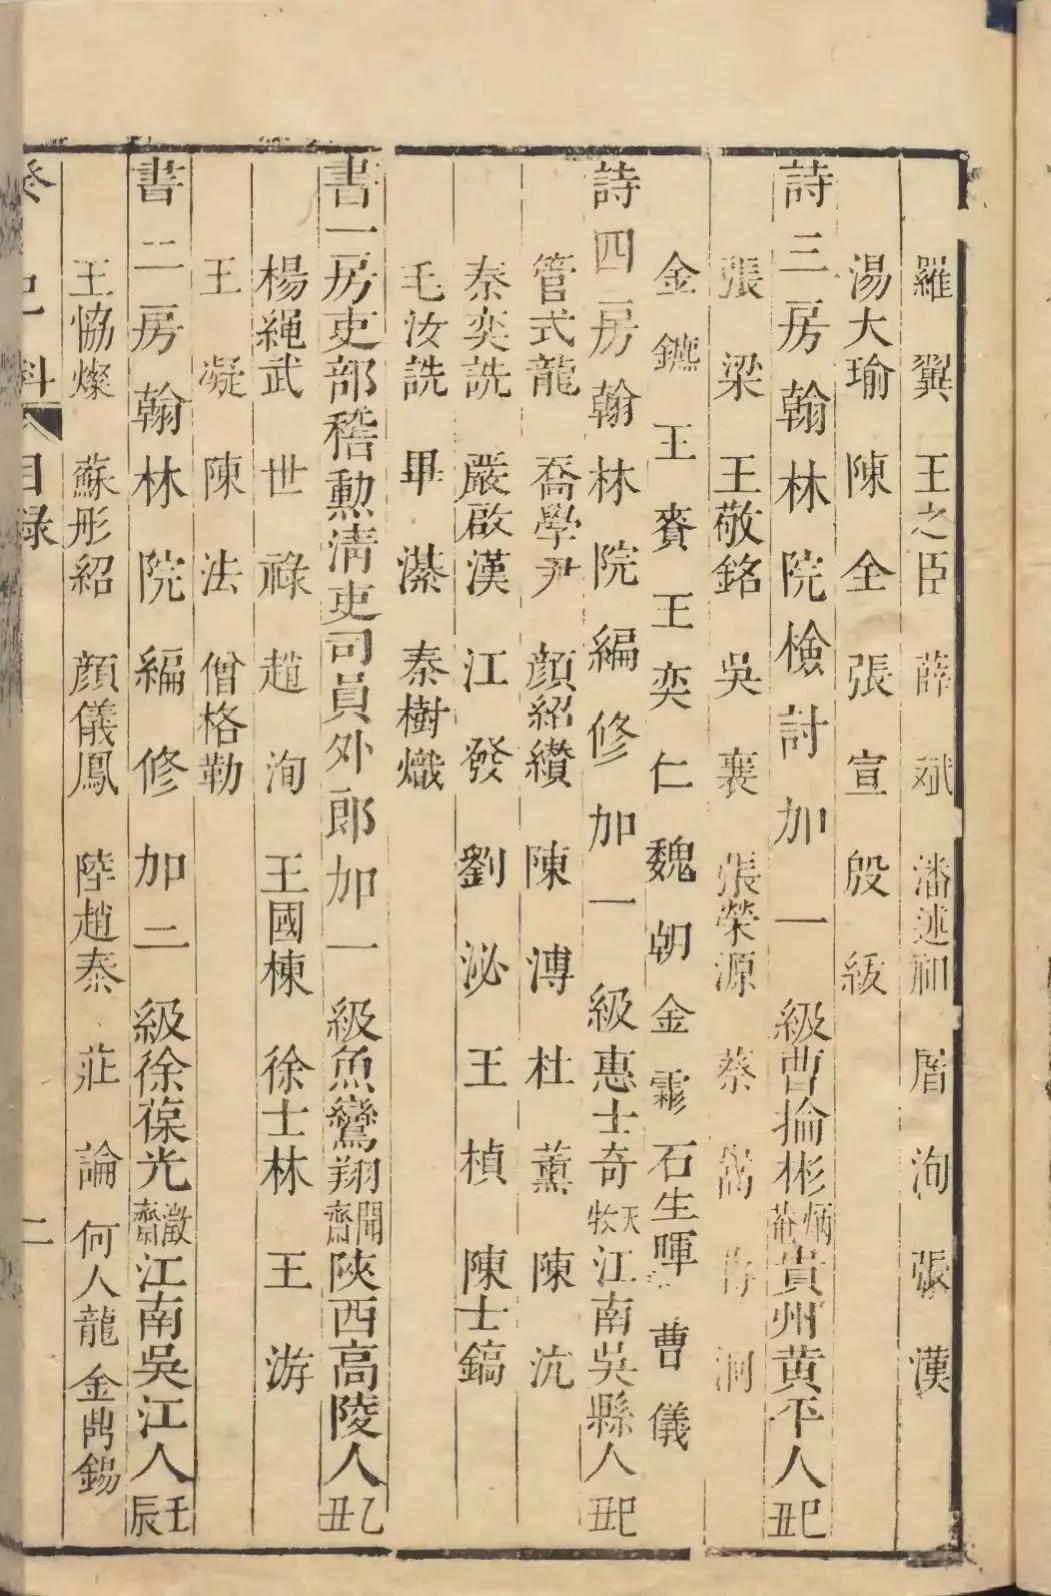 羅翼 王之臣 薛斌 潘述祖 厝洵 張漢
湯大瑜 陳全 張宣 殷級
詩三房翰林院檢討加一級曹掄彬炳菴貴州黄平人己丑
張梁 王敬銘 吳襄 張榮源 蔡嵩 洞
金鑣 王賚 王奕仁 魏朝 金霖 石生暉 曹儀
詩四房翰林院編修加一級惠士奇天牧江南吳縣人己丑
管式龍 喬學尹 顔紹纘 陳溥 杜薰 陳沆
秦奕詵 嚴啟漢 江發 劉泌 王楨 陳士鎬
毛汝詵 畢濴 秦樹熾
書一房吏部稽勲清吏司員外郎加一級魚鸞翔聞齋陜西高陵人乙丑
楊繩武 世祿 趙洵 王國棟 徐士林 王游
王凝 陳法 僧格勒
書二房翰林院編修加二級徐葆光澂齋江南吳江人壬辰
王恊燦 蘇彤紹 顔儀鳳 陸趙泰 莊論 何人龍 金鼎錫
癸巳科 目録 二